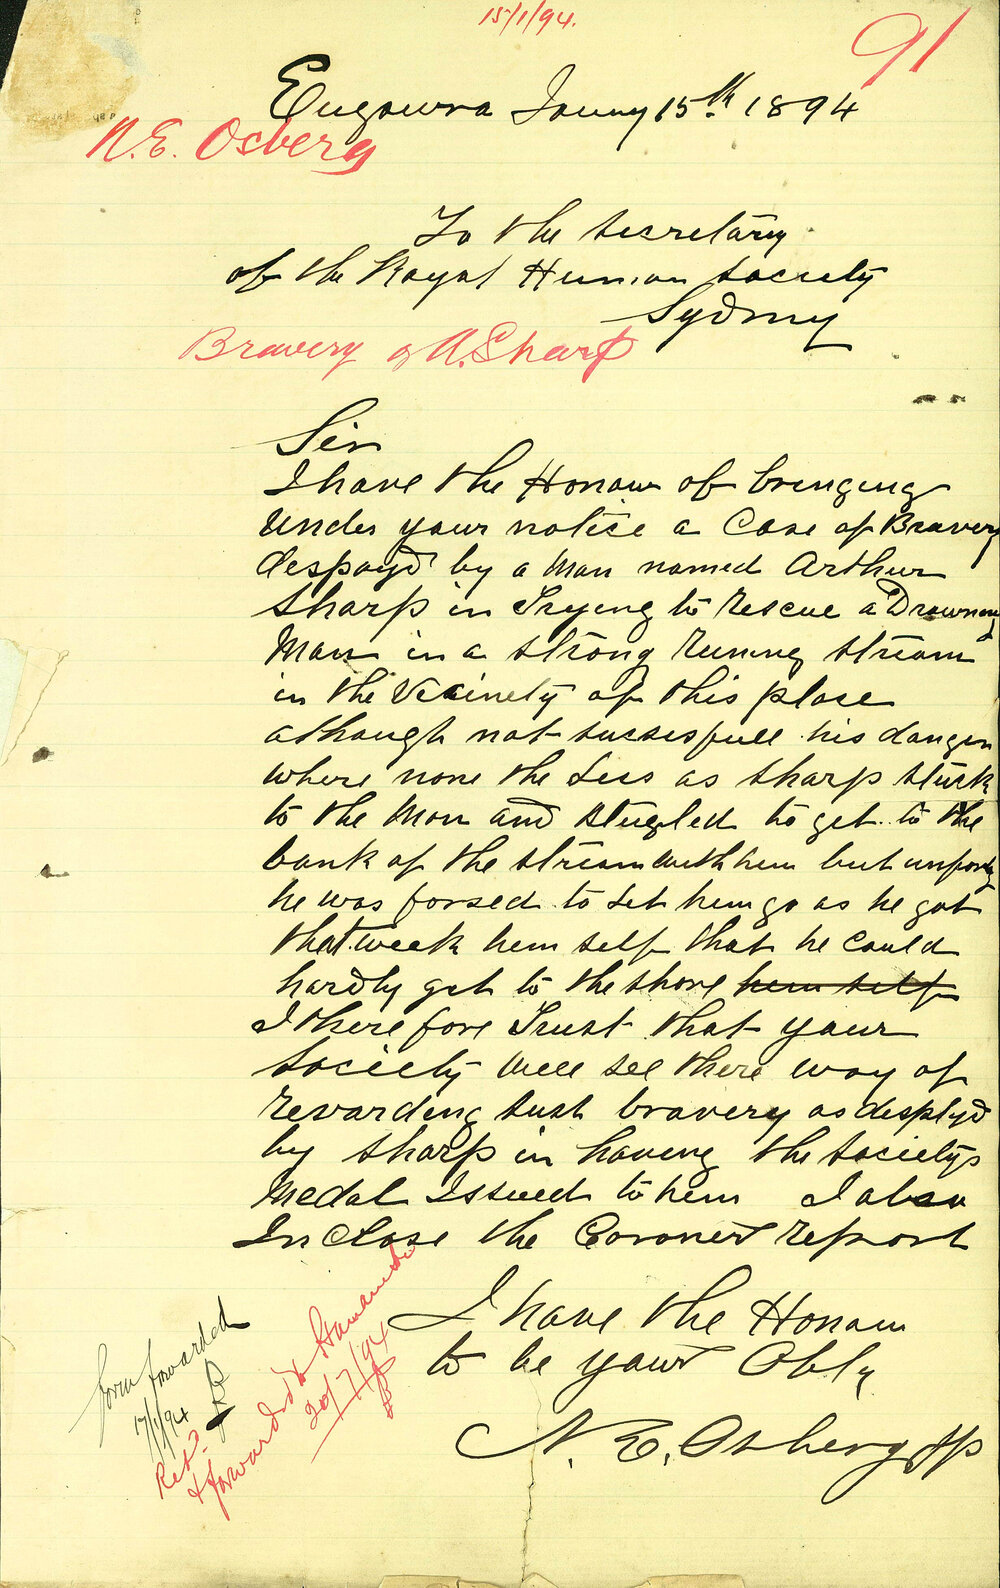 15/1/94.
91
Eugowra Jany 15th 1894
N.E. Osberg
To the Secretary
of the Royal Human Society
Sydny
Bravery of A. Sharp
Sir
I have the Honour of bringing
under your notise a Case of Bravery
despayd by a Man named Arthur
Sharp in Trying to rescue a Drowning
Man in a strong runing stream
in the Vicinety of this place
although not sucsesfull his danger
where none the Less as Sharp stuck
to the Man and stugled to get to the
bank of the stream with him but
he was forsed to Let him go as he got
that week him self that he could
hardly get to the shore him self
I there fore Trust that your
Society will see there way of
revarding such bravery as desplyd
by Sharp in having the Societys
Medal Issued to him I also
In Close the Coroners report
I have the Honour
to be your Obly
N. E. Osberg JP
form forwarded
17/1/94
Ret.
& forwarded to
20/7/94